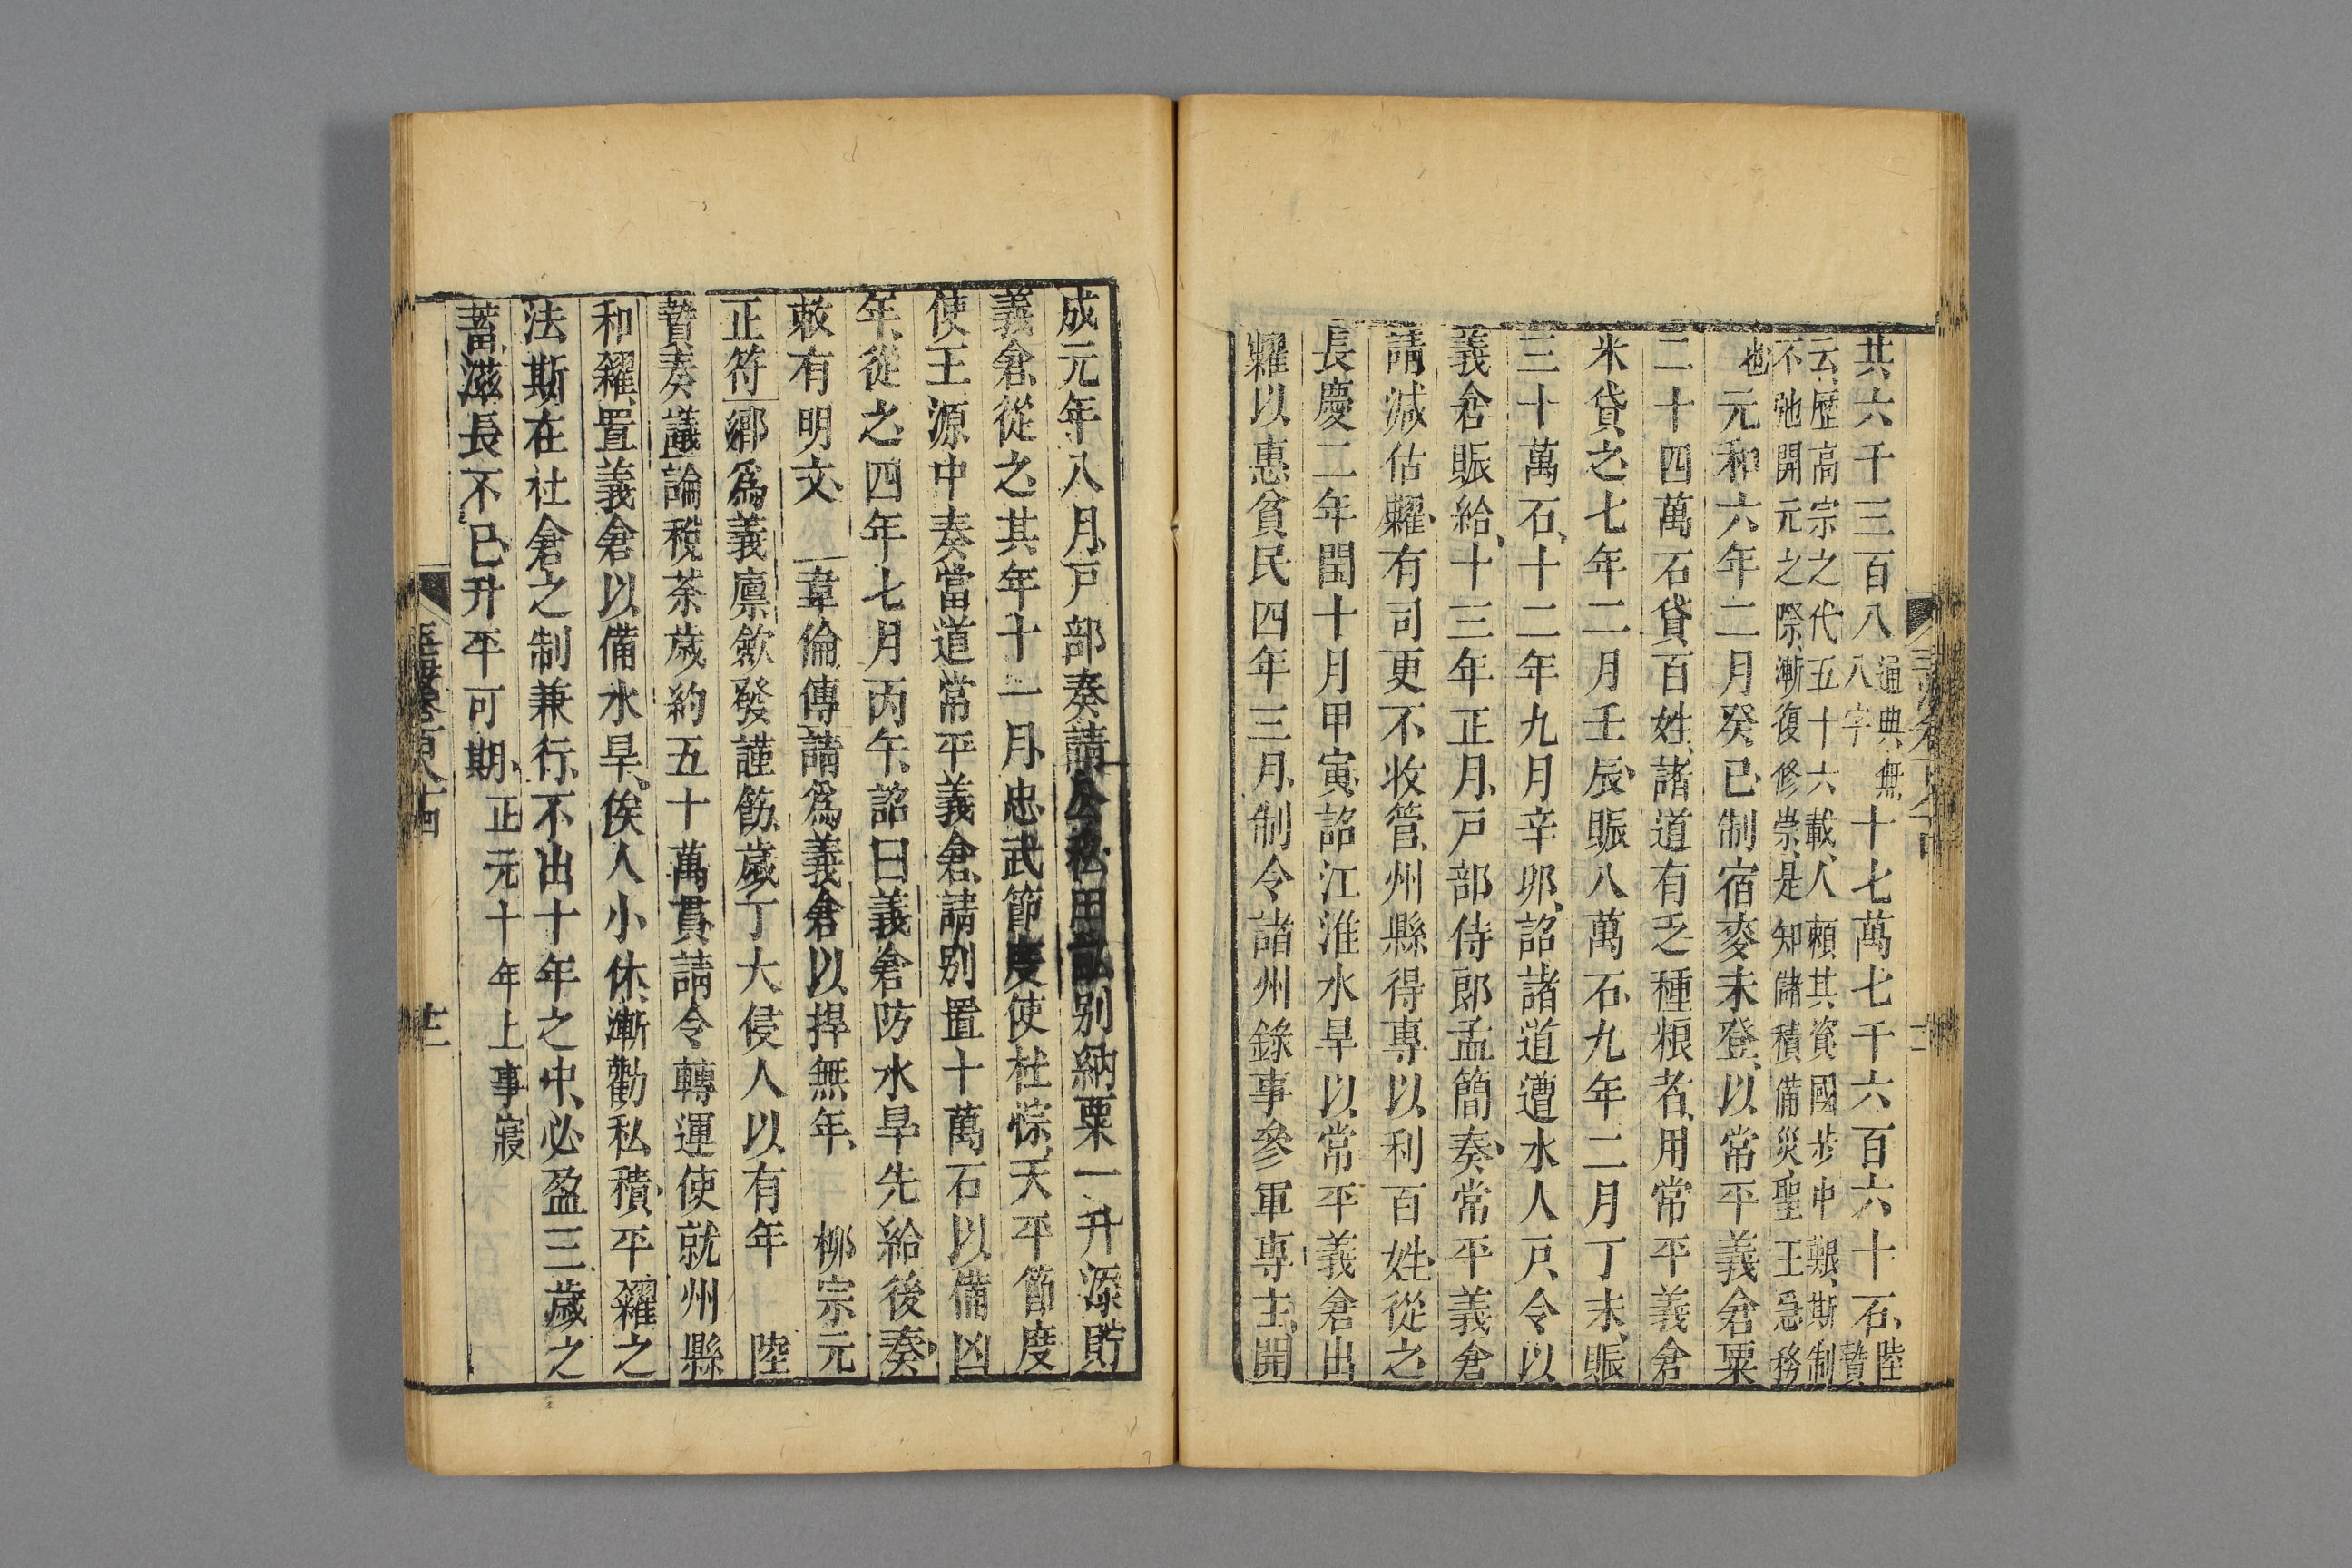 共六千三百八通典無八字十七萬七千六百六十石陸贄
云歷高宗之代五十六載人賴其資國步中艱斯制
不弛開元之際漸復修崇是知儲積備災聖王急務
也元和六年二月癸巳制宿麥未登以常平義倉粟
二十四萬石貸百姓諸道有乏種粮者用常平義倉
米貸之七年二月壬辰賑八萬石九年二月丁未賑
三十萬石十二年九月辛卯詔諸道遭水人戸令以
義倉賑給十三年正月戸部侍郎孟簡奏常平義倉
請減估糶有司更不收管州縣得專以利百姓從之
長慶二年閏十月甲寅詔江淮水旱以常平義倉出
糶以惠貧民四年三月制令諸州錄事參軍專主開
成元年八月戸部奏請公私田別納粟一升添貯
義倉從之其年十一月忠武節度使杜悰天平節度
使王源中奏當道常平義倉請別置十萬石以備凶
年從之四年七月丙午詔曰義倉防水旱先給後奏
敕有明文 韋倫傳請爲義倉以捍無年 柳宗元
正符鄉爲義廪歛發謹飭歲丁大侵人以有年 陸
贄奏議論稅茶歲約五十萬貫請令轉運使就州縣
和糴置義倉以備水旱俟人小休漸勸私積平糴之
法斯在社倉之制兼行不出十年之中必盈三歲之
蓄滋長不已升平可期正元十年上事寢